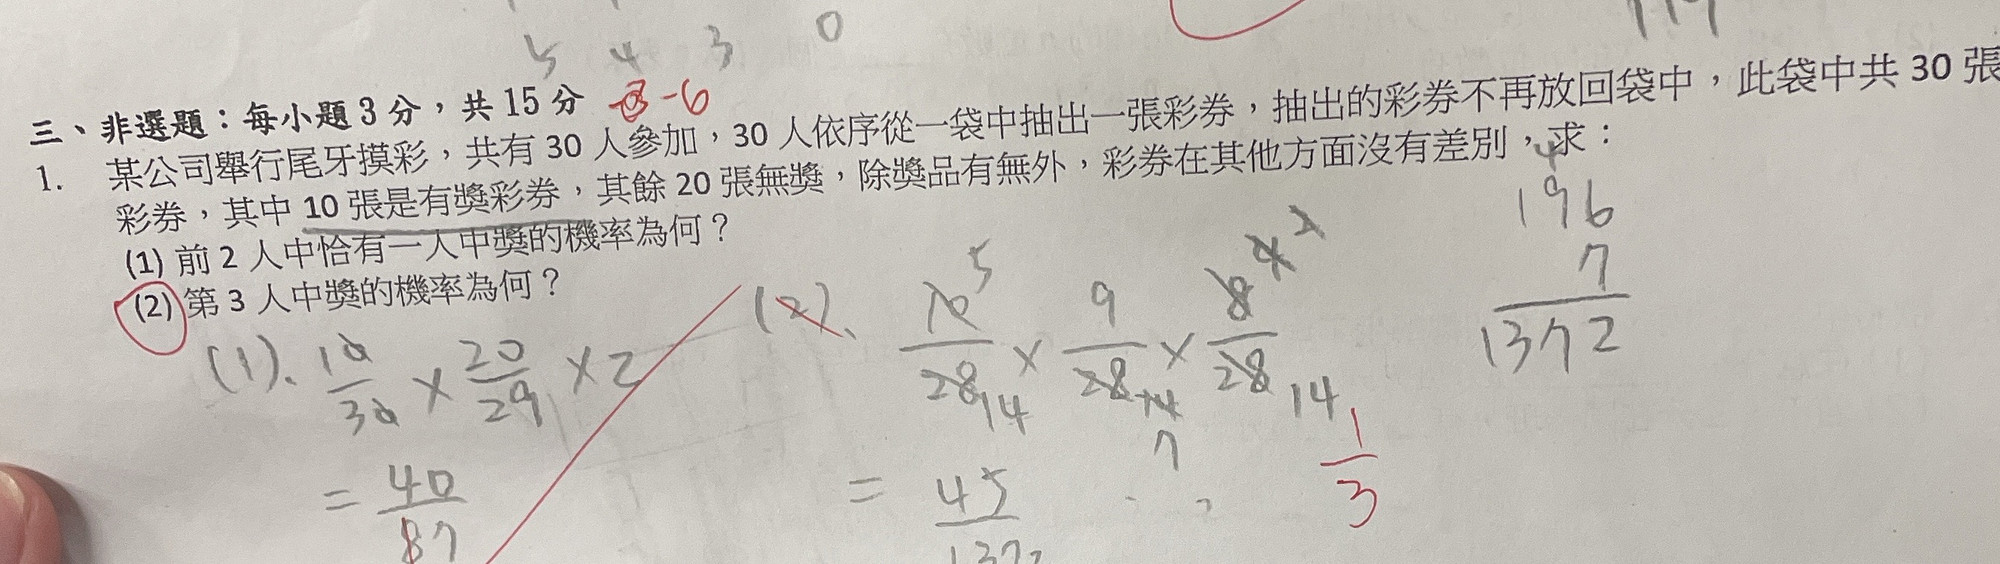 5 4 3 0
三、非選題：每小題 3 分，共 15 分 -6
1. 某公司舉行尾牙摸彩，共有 30 人參加，30 人依序從一袋中抽出一張彩券，抽出的彩券不再放回袋中，此袋中共 30 張
彩券，其中 10 張是有獎彩券，其餘 20 張無獎，除獎品有無外，彩券在其他方面沒有差別，求：
(1) 前 2 人中恰有一人中獎的機率為何？
(2) 第 3 人中獎的機率為何？
(1). 10/30 × 20/29 × 2
= 40/87
(2). 10/28 × 9/28 × 8/28
5 4 2
14 14 14
7
= 45/1372
1/3
4
196
7
1372